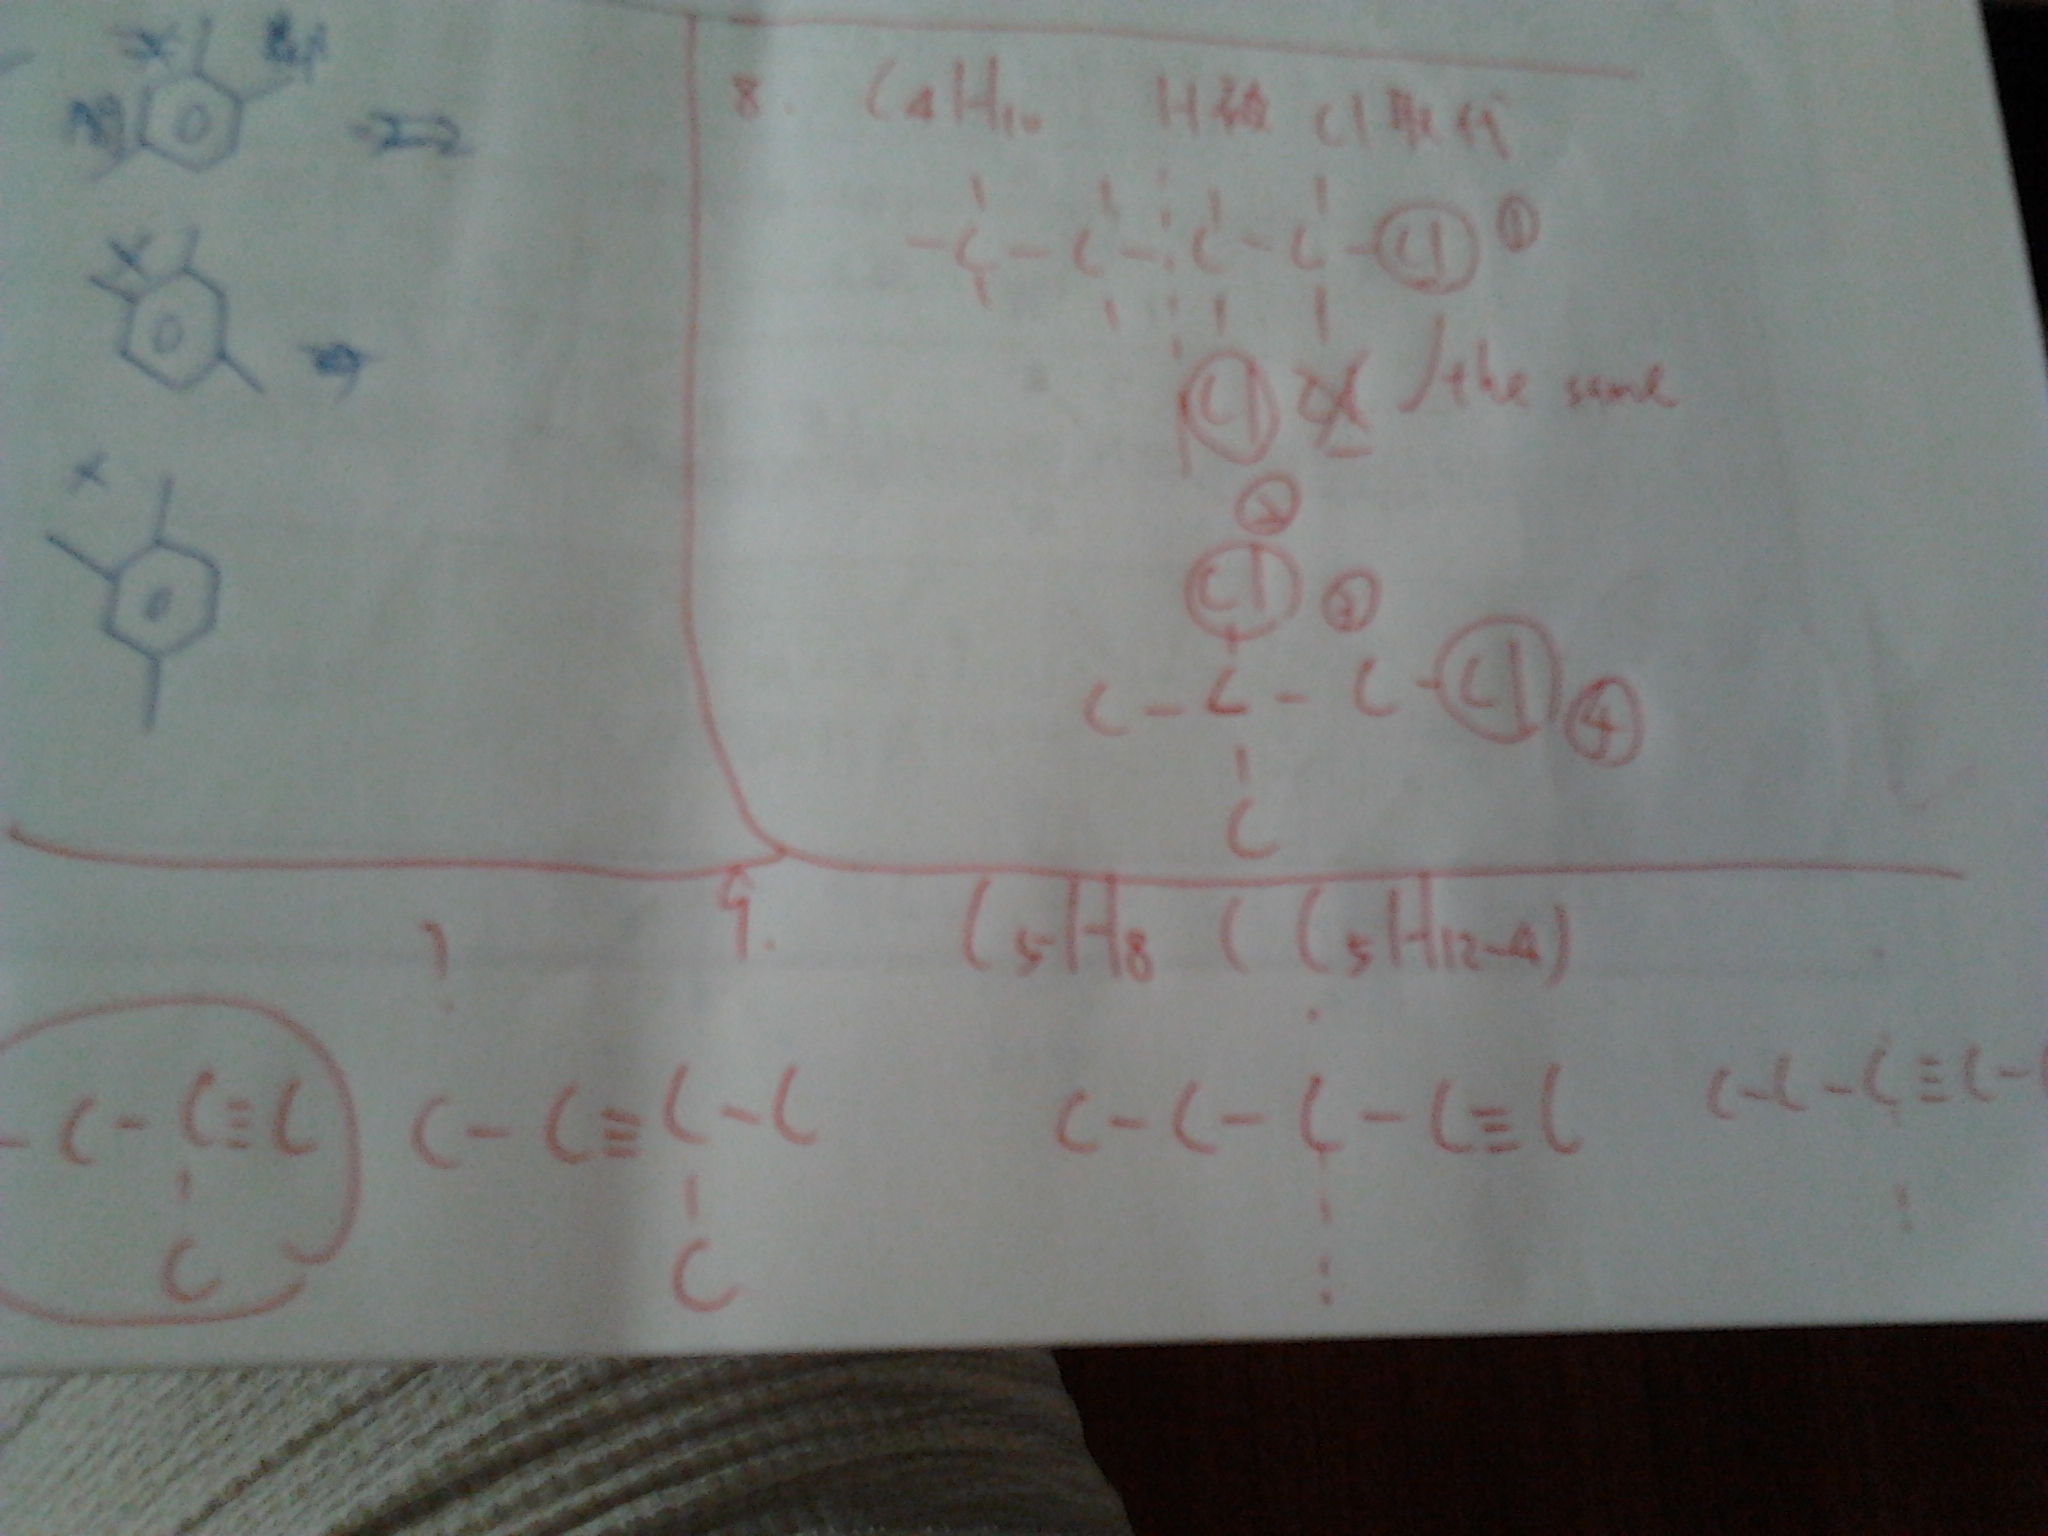 8. C4H10 H被Cl取代
-C-C-C-C-Cl ①
Cl the same
②
Cl ③
C-C-C-Cl ④
C
9. C5H8 (C5H12-4)
-C-C≡C C-C≡C-C C-C-C-C≡C C-C-C≡C-
C C